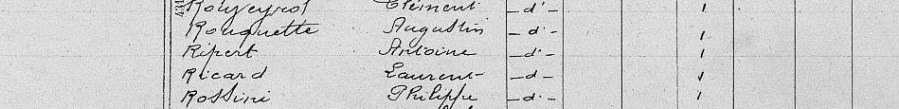 Rouveyrol Clément - d° - 1
Rouquette Augustin - d° - 1
Ripert Antoine - d° - 1
Ricard Laurent - d° - 1
Rossini Philippe - d° - 1